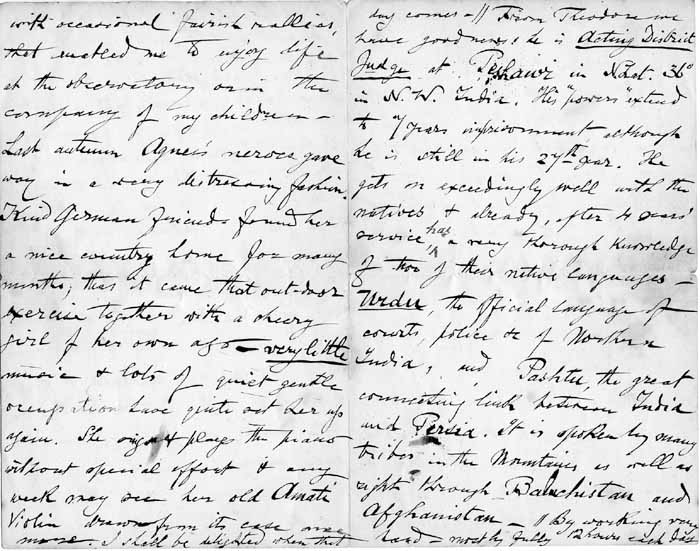 with occasional fairish rallies,
that enabled me to enjoy life
at the observatory or in the
company of my children –
Last autumn Agnes's nerves gave
way in a very distressing fashion.
Kind German friends found her
a nice country home for many
months; thus it came that out-door
exercise together with a cheery
girl of her own age – very little
music & lots of quiet gentle
occupation have quite set her up
again. She sings & plays the piano
without special effort & any
week may see her old Amati
Violin drawn from its case once
more. I shall be delighted when that
day comes – // From Theodore we
have good news, he is Acting District
Judge at Peshawr in Lat. 36°
in N.W. India. His "powers" extend
to 7 years imprisonment although
he is still in his 27th year. He
gets on exceedingly well with the
natives & already, after 4 years'
service, has a very thorough knowledge
of two of their native languages –
Urdu, the official language of
courts, police &c of Northern
India, and, Pashtu, the great
connecting link between India
and Persia. It is spoken by many
tribes in the Mountains as well as
right through Baluchistan and
Afghanistan – // By working very
hard – mostly fully 12 hours each